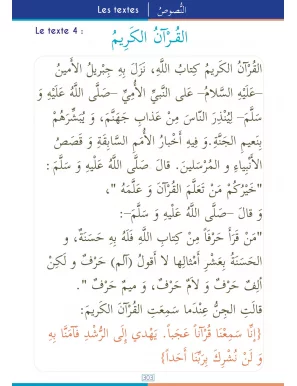 Les textes | النُّصوصُ
Le texte 4 :
القُرْآنُ الكَرِيمُ
القُرْآنُ الكَرِيمُ كِتابُ اللَّهِ، نَزَلَ بِهِ جِبْرِيلُ الأَمينُ
–عَلَيْهِ السَّلامُ– عَلى النَّبِيِّ الأُمِيِّ –صَلَّى اللَّهُ عَلَيْهِ وَ
سَلَّمَ– لِيُنْذِرَ النَّاسَ مِنْ عَذابِ جَهَنَّمَ، وَ يُبَشِّرَهُمْ
بِنَعيمِ الجَنَّةِ.وَ فيهِ أَخْبارُ الأُمَمِ السَّابِقَةِ وَ قَصَصُ
الأَنْبِياءِ و المُرْسَلينَ. قالَ صَلَّى اللَّهُ عَلَيْهِ وَ سَلَّمَ :
"خَيْرُكُمْ مَنْ تَعَلَّمَ القُرْآنَ وَ عَلَّمَهُ "،
وَ قالَ –صَلَّى اللَّهُ عَلَيْهِ وَ سَلَّمَ–:
"مَنْ قَرَأَ حَرْفاً مِنْ كِتابِ اللَّهِ فَلَهُ بِهِ حَسَنَةٌ، و
الحَسَنَةُ بِعَشْرِ أَمْثالِها لا أَقولُ (آلم) حَرْفٌ وَ لَكِنْ
أَلِفٌ حَرْفٌ وَ لاَمٌ حَرْفٌ، وَ ميمٌ حَرْفٌ ".
قالَتِ الجِنُّ عِنْدَما سَمِعَتِ القُرْآنَ الكَرِيمَ:
{إِنَّا سَمِعْنَا قُرْآناً عَجَباً. يَهْدِي إِلَى الرُّشْدِ فَآمَنَّا بِهِ
وَ لَنْ نُشْرِكَ بِرَبِّنَا أَحَداً}
303